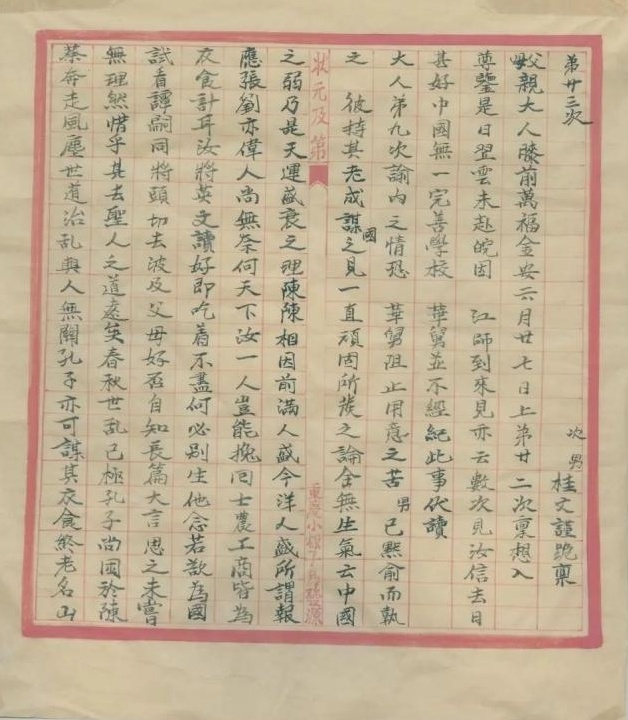 第廿三次
次男桂文謹跪禀
父母親大人膝前萬福金安六月廿七日上第廿二次禀想入
尊鑒是日翌雲未赴皖因 江師到來見亦云數次見汝信去日
甚好中國無一完善學校 華舅並不經紀此事代讀
大人第九次諭內之情恐 華舅阻止用意之苦男已黙俞而執
之 彼持其老成謀國之見一直頑固所發之論全無生氣云中國
狀元及第
重慶小
之弱乃是天運盛衰之理陳陳相因前滿人盛今洋人盛所謂報
應張劉亦偉人尚無奈何天下汝一人豈能挽回士農工商皆為
衣食計耳汝將英文讀好即吃着不盡何必別生他念若欲為國
試看譚嗣同將頭切去波及父毋好否自知長篇大言思之未嘗
無理然惜乎其去聖人之道遠矣春秋世亂已極孔子尚困於陳
蔡奔走風塵世道治乱與人無關孔子亦可謀其衣食終老名山